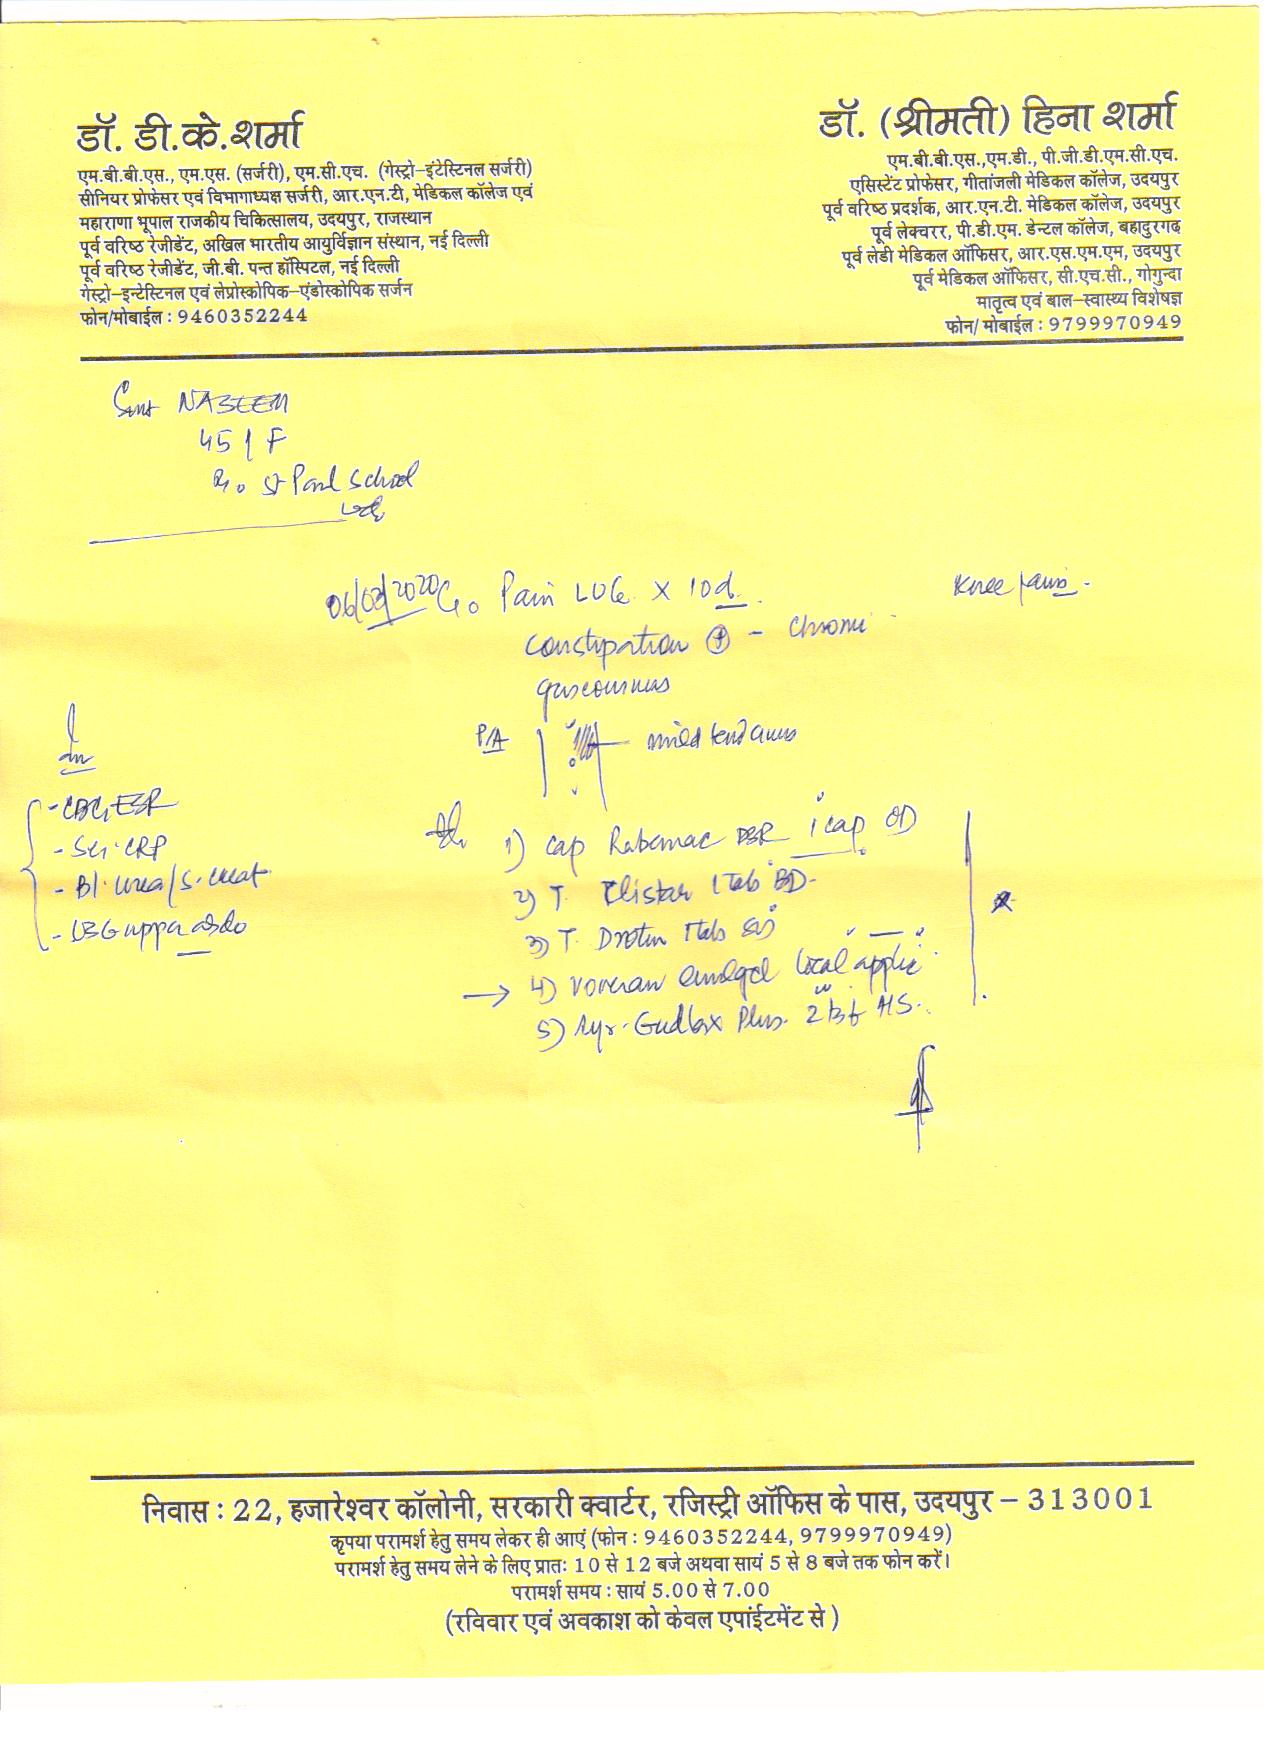 डॉ. डी.के.शर्मा
एम.बी.बी.एस., एम.एस. (सर्जरी), एम.सी.एच. (गेस्ट्रो-इंटेस्टिनल सर्जरी)
सीनियर प्रोफेसर एवं विभागाध्यक्ष सर्जरी, आर.एन.टी. मेडिकल कॉलेज एवं
महाराणा भूपाल राजकीय चिकित्सालय, उदयपुर, राजस्थान
पूर्व वरिष्ठ रेजीडेंट, अखिल भारतीय आयुर्विज्ञान संस्थान, नई दिल्ली
पूर्व वरिष्ठ रेजीडेंट, जी.बी. पन्त हॉस्पिटल, नई दिल्ली
गेस्ट्रो-इन्टेस्टिनल एवं लेप्रोस्कोपिक-एंडोस्कोपिक सर्जन
फोन/मोबाईल : 9460352244
डॉ. (श्रीमती) हिना शर्मा
एम.बी.बी.एस.,एम.डी., पी.जी.डी.एम.सी.एच.
एसिस्टेंट प्रोफेसर, गीतांजली मेडिकल कॉलेज, उदयपुर
पूर्व वरिष्ठ प्रदर्शक, आर.एन.टी. मेडिकल कॉलेज, उदयपुर
पूर्व लेक्चरर, पी.डी.एम. डेन्टल कॉलेज, बहादुरगढ़
पूर्व लेडी मेडिकल ऑफिसर, आर.एस.एम.एम, उदयपुर
पूर्व मेडिकल ऑफिसर, सी.एच.सी., गोगुन्दा
मातृत्व एवं बाल-स्वास्थ्य विशेषज्ञ
फोन/ मोबाईल : 9799970949
Smt NASEEM
45 / F
St Paul School
06/03/2020 C/o Pain x 10d.
Knee pains -
Constipation ⊕ - Chronic
gaseousness
P/A
mild tenderness
Inv
- CBC, ESR
- Ser. CRP
- Bl. urea/S. creat.
- USG upper abdo
1) Cap Rabemac DSR 1 cap OD
2) T. 1 Tab BD-
3) T. Drotin 1 Tab
4) Voveran emulgel local applic
5) Syr. Plus. HS.
निवास : 22, हजारेश्वर कॉलोनी, सरकारी क्वार्टर, रजिस्ट्री ऑफिस के पास, उदयपुर – 313001
कृपया परामर्श हेतु समय लेकर ही आएं (फोन : 9460352244, 9799970949)
परामर्श हेतु समय लेने के लिए प्रातः 10 से 12 बजे अथवा सायं 5 से 8 बजे तक फोन करें।
परामर्श समय : सायं 5.00 से 7.00
(रविवार एवं अवकाश को केवल एपांईटमेंट से )